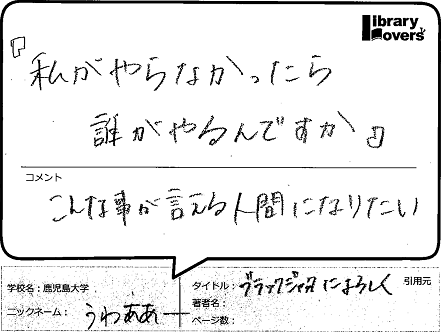 Library Lovers'
『私がやらなかったら
誰がやるんですか』
コメント
こんな事が言える人間になりたい
学校名：鹿児島大学
ニックネーム：うわああー
タイトル：ブラックジャックによろしく 引用元
著者名：
ページ数：